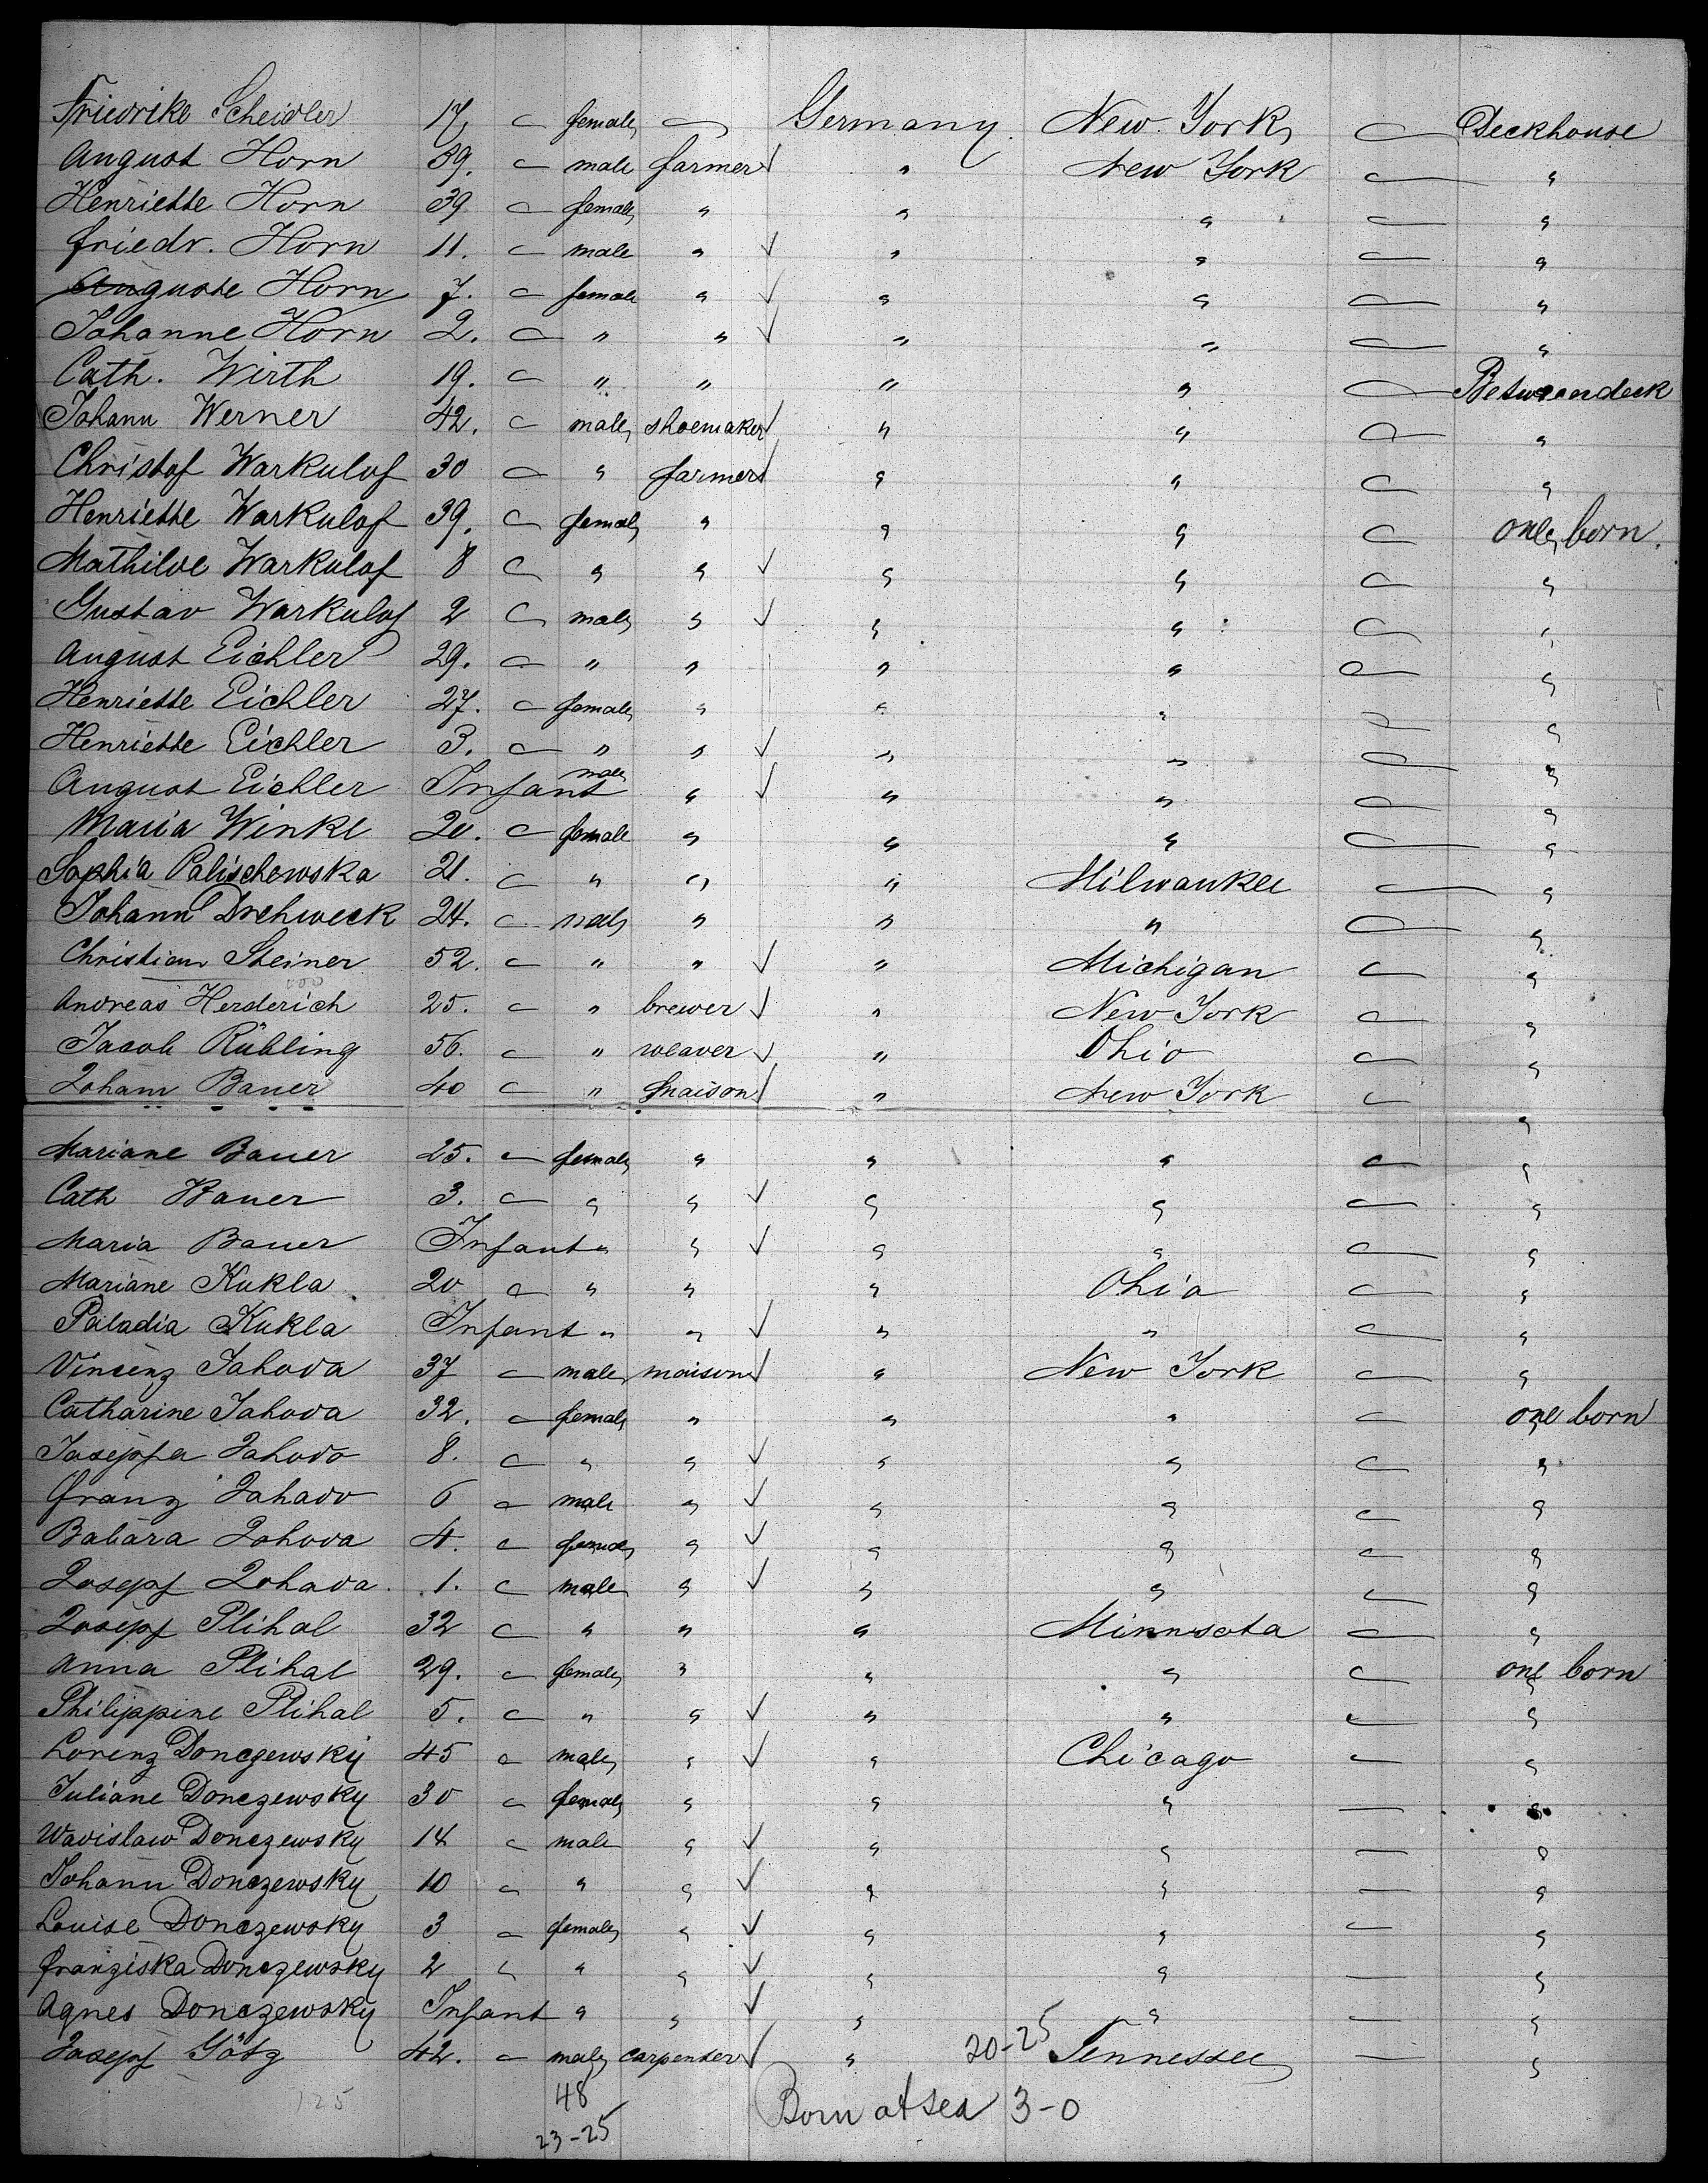 Friedrike Scheidler 17, female Germany. New York, Deckhouse
August Horn 39. male farmer ✓ " New York "
Henriette Horn 39 female " " " "
Friedr. Horn 11. male " ✓ " " "
Auguste Horn 7. female " ✓ " " "
Johanne Horn 2. " " ✓ " " "
Cath. Wirth 19. " " " " Betweendeck
Johann Werner 42. male shoemaker ✓ " " "
Christof Warkulof 30 " farmer ✓ " " "
Henriette Warkulof 39. female " " " one born.
Mathilde Warkulof 8 " " ✓ " " "
Gustav Warkulof 2 male " ✓ " " "
August Eichler 29. " " " " "
Henriette Eichler 27. female " " " "
Henriette Eichler 3. " " ✓ " " "
August Eichler Infant male " ✓ " " "
Maria Winkl 20. female " " " "
Sophia Palischewska 21. " " " Milwaukee "
Johann Drehweck 24. male " " " "
Christian Steiner 52. " " ✓ " Michigan "
Andreas Herderich 25. " brewer ✓ " New York "
Jacob Rübling 56. " weaver ✓ " Ohio "
Johann Bauer 40 " maison ✓ " New York "
Mariane Bauer 25. female " " " "
Cath Bauer 3. " " ✓ " " "
Maria Bauer Infant " " ✓ " " "
Mariane Kukla 20 " " " Ohia "
Paladia Kukla Infant " " ✓ " " "
Vincenz Jahoda 37 male maison ✓ " New York "
Catharine Jahoda 32. female " " " one born "
Joseppa Jahoda 8. " " ✓ " " "
Franz Jahado 6 male " ✓ " " "
Babara Johoda 4. female " ✓ " " "
Josepf Johada. 1. male " ✓ " " "
Josepf Plihal 32 " " " Minnsota "
Anna Plihal 29. female " " " one born "
Philippine Plihal 5. " " ✓ " " "
Lorenz Donczewsky 45 male " ✓ " Chicago "
Juliane Donczewsky 30 female " " " "
Wadislaw Donczewsky 14 male " ✓ " " "
Johann Donczewsky 10 " " ✓ " " "
Louise Donczewsky 3 female " ✓ " " "
Franziska Donczewsky 2 " " ✓ " " "
Agnes Donczewsky Infant " " ✓ " " "
Josepf Götz 42. male carpenter ✓ " 20-25 Tennessee "
125 48 Born at sea 3-0
23-25